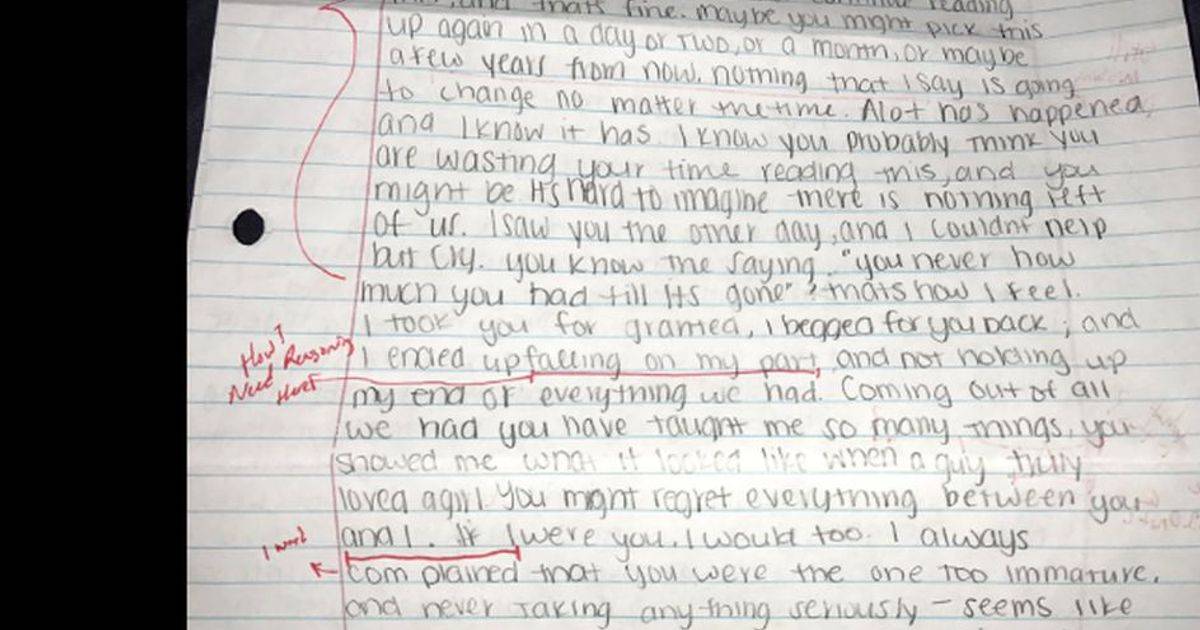 and thats fine. maybe you might pick this
up again in a day or two, or a month, or maybe
a few years from now. nothing that I say is going
to change no matter the time. Alot has happened,
and I know it has. I know you probably think you
are wasting your time reading this, and you
might be. It's hard to imagine there is nothing left
of us. I saw you the other day, and I couldnt help
but cry. you know the saying. "you never how
much you had till its gone"? thats how I feel.
I took you for granted, I begged for you back, and
How? Need Reasoning Here
I ended up falling on my part, and not holding up
my end of everything we had. Coming out of all
we had you have taught me so many things, you
showed me what it looked like when a guy truly
loved a girl. You might regret everything between you
and I. If I were you, I would too. I always
1 word
complained that you were the one too immature,
and never taking anything seriously - seems like